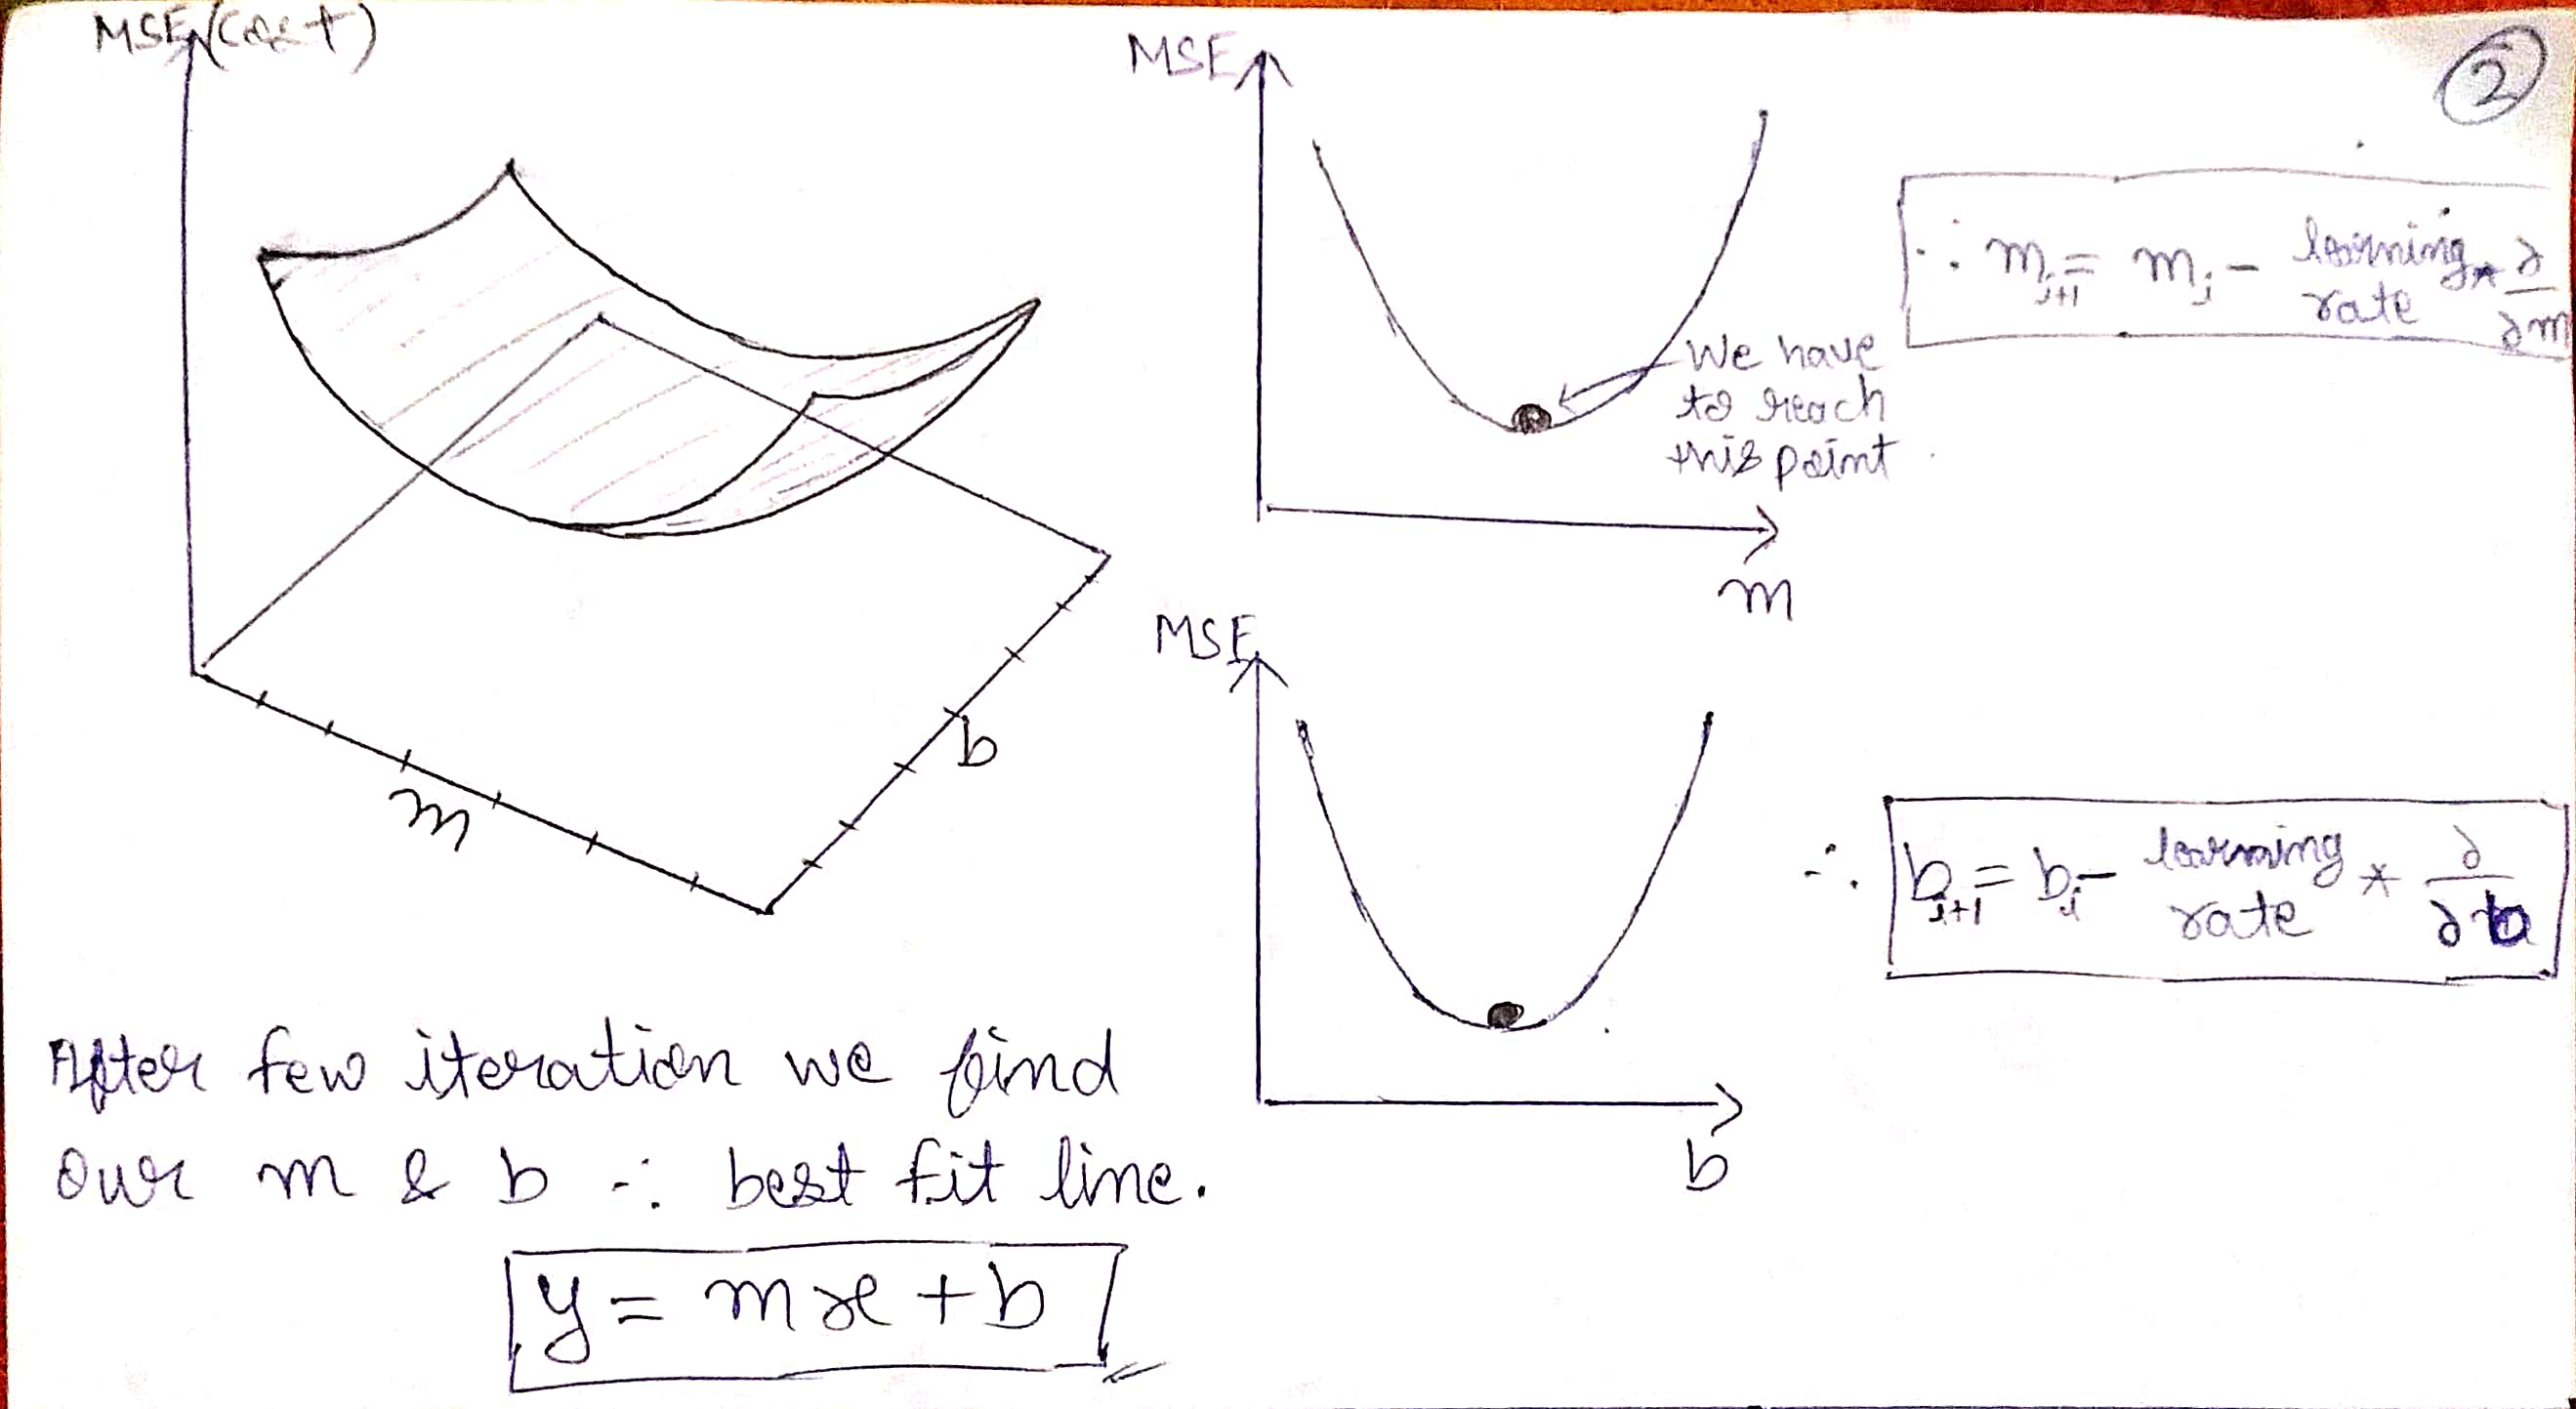 MSE (cost)
m
b
MSE
We have
to reach
this point
m
2
∴ m_{i+1} = m_i - learning rate * ∂/∂m
MSE
b
∴ b_{i+1} = b_i - learning rate * ∂/∂b
After few iteration we find
our m & b ∴ best fit line.
y = mx + b